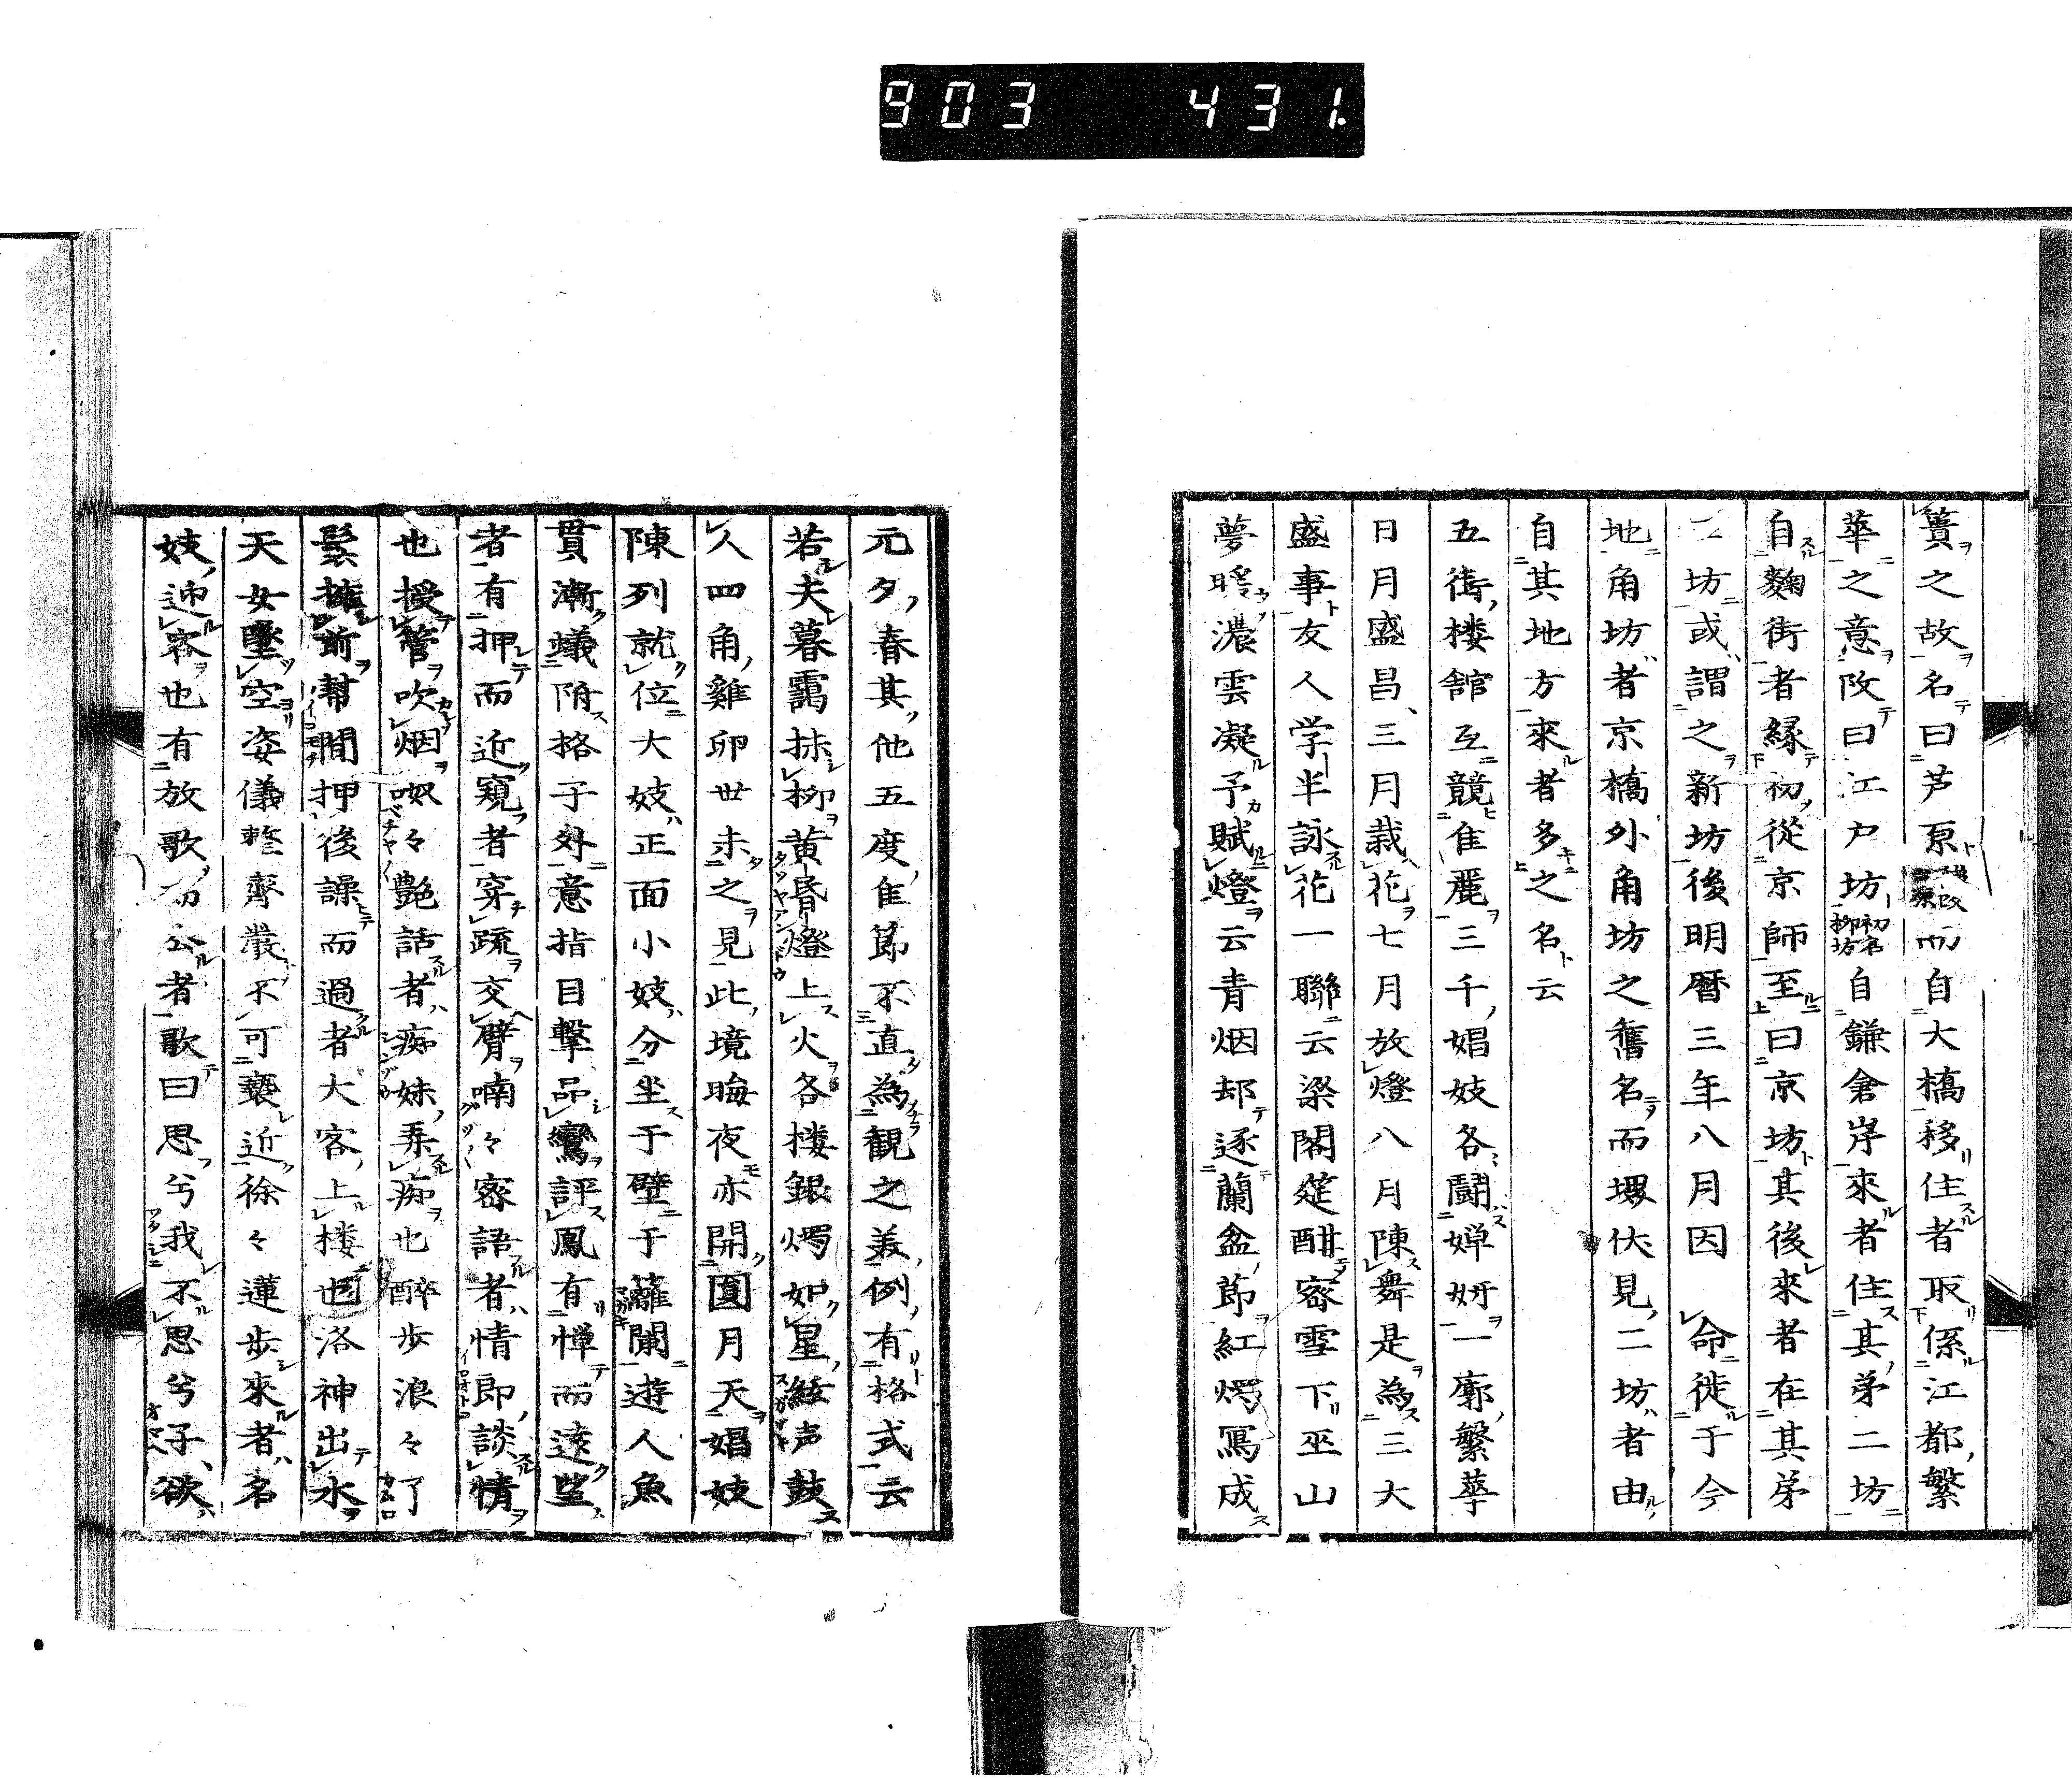 903 431.
簣之故名曰芦原後改吉原而自大橋移住者取係江都繁
華之意改曰江戸坊初名柳坊自鎌倉岸來者住其苐二坊
自麹街者縁初從京師至曰京坊其後來者在其苐
二坊或謂之新坊後明暦三年八月因 命徙于今
地角坊者京橋外角坊之舊名而堺伏見二坊者由
自其地方來者多之名云
五街楼舘互競隹麗三千娼妓各鬪婵妍一廓繁華
日月盛昌三月栽花七月放燈八月陳舞是為三大
盛事友人学半詠花一聯云梁閣筵酣密雪下巫山
夢暖濃雲凝予賦燈云青烟却逐蘭盆節紅燭冩成
元夕春其他五度隹節不直為観之羙例有格式云
若夫暮靄抹柳黄昏燈上火各楼銀燭如星絃声鼓
人四角雞卵世未之見此境晦夜亦開圓月天娼妓
陳列就位大妓正面小妓分坐于壁于籬闌遊人魚
貫漸蟻附格子外意指目撃品鸞評鳳有憚而遠望
者有押而近窺者穿疏交臂喃々密語者情郎談情
也授管吹烟呶々艶話者痴妹弄痴也醉歩浪々了
鬟擁前幇間押後譟而過者大客上楼也洛神出水
天女墜空姿儀整齊嚴不可褻近徐々蓮歩來者名
妓迎客也有放歌為公者歌曰思兮我不思兮子欲